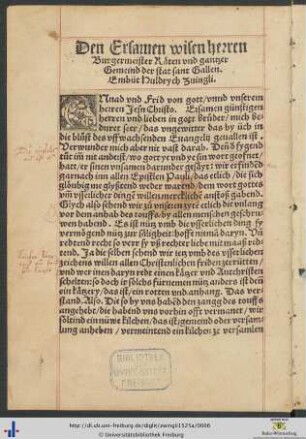 Den Ersamen wisen herren
Burgermeister Räten vnnd gantzer
Gemeind der stat sant Gallen.
Embüt Huldrych Zuingli.
GNad vnd Frid von gott/vnnd vnserem
herren Jesu Christo. Ersamen günstigen
herren vnd lieben in gott brüder/mich be
duret seer/das vngewitter das by üch in
die blüst des vffwachsenden Euangelij geuallen ist.
Verwunder mich aber nit vast darab. Denn
tüt im nit anderst/wo gott
hatt/er sinen vnsamen darunder
garnach inn allen Epistlen Pauli/das etlich/die sich
glöubig
vm vsserlicher dingē willen anstoß gabend.
Glych also sehend wir zu vnseren zyten etlich die vnlang
vor dem anhab des touffs/by allen menschen geschru
wen habend. Es ist nütz vmb die vsserlichen ding
vermögend nütz zur säligheit: hoffe nieman daryn. Vn
redtend recht so verr
tend. Ja die selben sehend wir ietz vmb des vsserlichen
zeichens willen allen Christenlichen friden zerrütten/
vnd wer inen daryn redt einen kätzer vnd Antchristen
schelten: so doch ir fürnemen nütz anders ist denn
ein kätzery/das ist/ein rotten vnd anhang. Das ver
stand. Also. Die so by vns habēd den zangg des touffs
angehebt/die habend vns vorhin offt vermanet/wir
söltind ein nüwe kilchen/das ist/gemeind oder versam
lung anheben/vermeintend ein kilchen ze versamlen
BIBLIOTHECA
UNIVERSITATIS
FRIBURG.
http://dl.ub.uni-freiburg.de/diglit/zwingli1525a/0006
© Universitätsbibliothek Freiburg
Baden-Württemberg